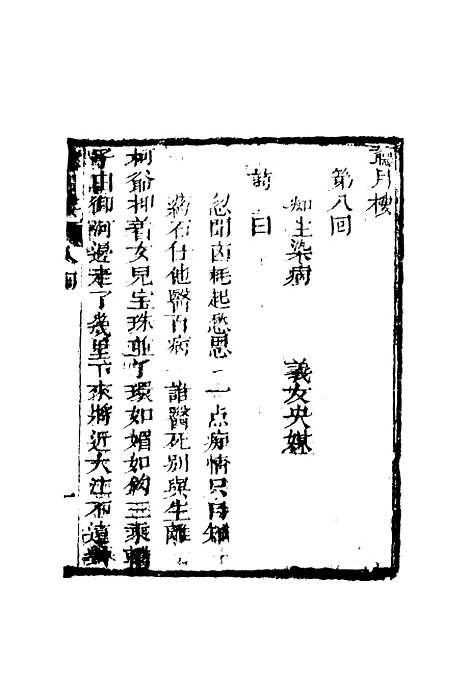 聽月樓
第八回
痴生染病　義友央媒
詩曰
忽聞凶耗起愁思　一点痴情只自知
藥石任他醫百病　誰醫死別與生離
柯爺押着女兒宝珠並丫環如媚如鈎三乘轎
子由御河边走了幾里下來將近大江不遠
八回
一